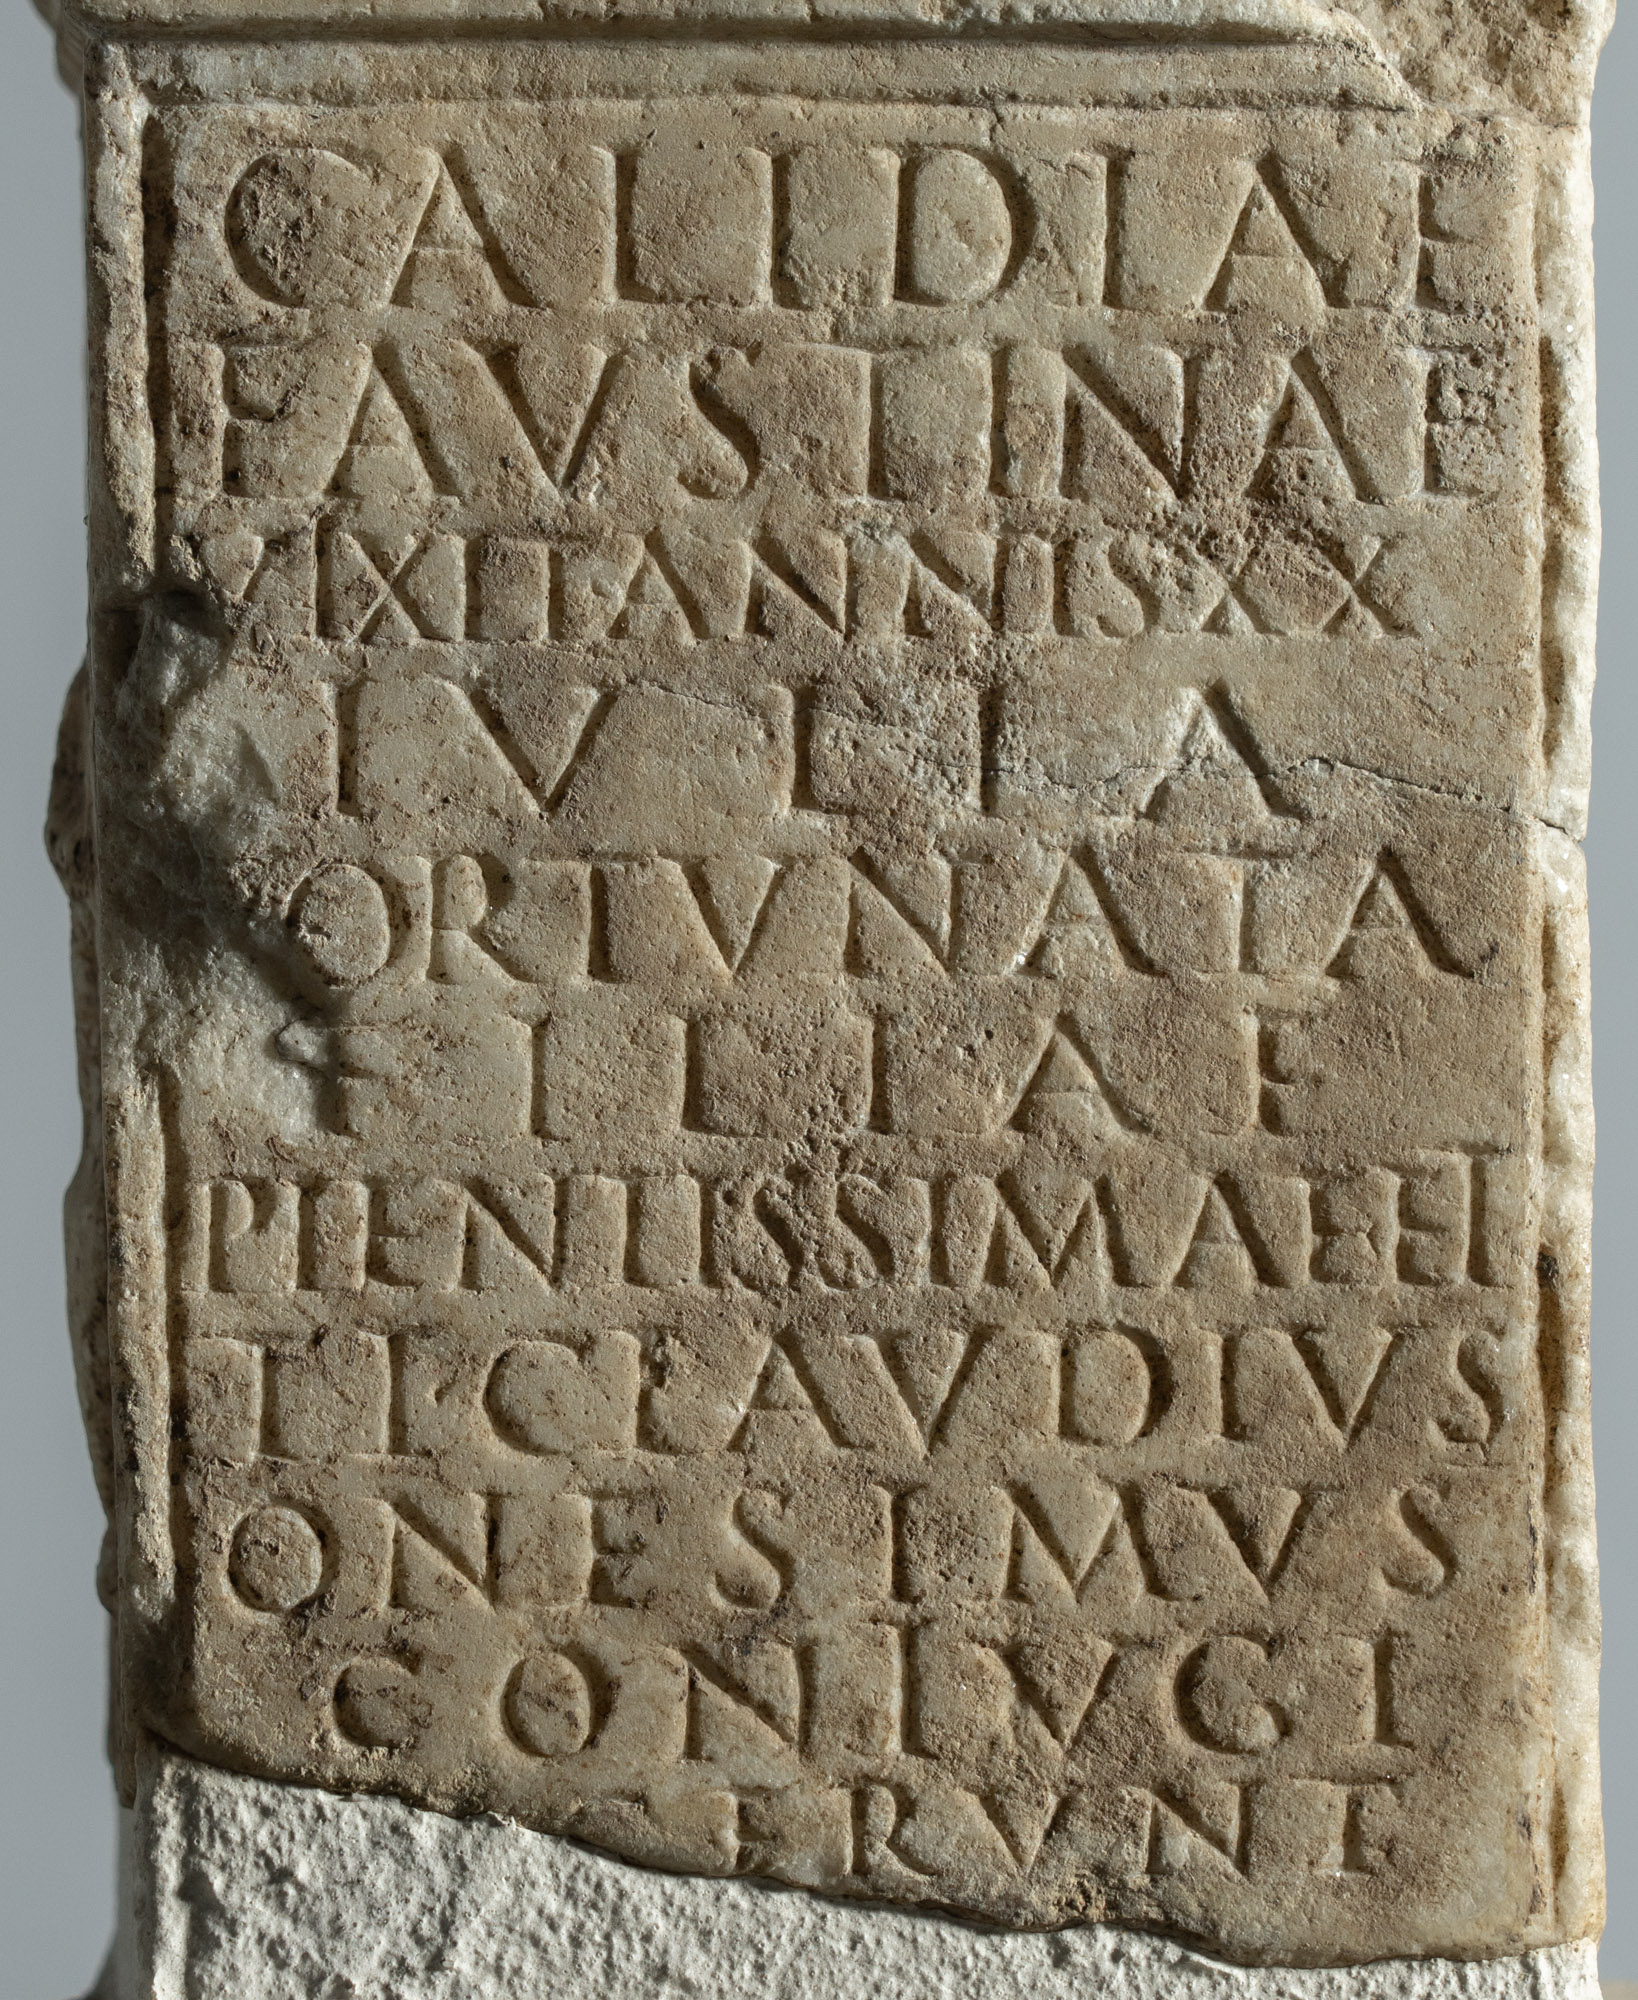 CALIDIAE
FAVSTINAE
VIXIT ANNIS XX
IVLIA
ORTVNATA
FILIAE
PIENTISSIMAE ET
TI CLAVDIVS
ONESIMVS
CONIVGI
CERVNT